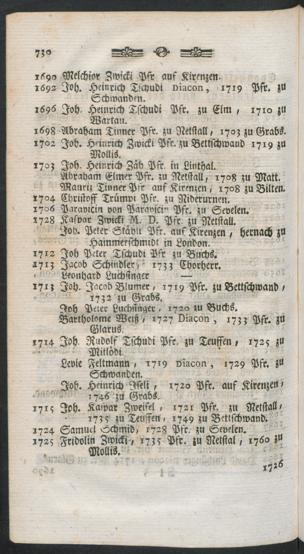 730
1690 Melchior Zwicki Pfr. auf Kirenzen.
1692 Joh. Heinrich Tschudi Diacon, 1719 Pfr. zu
Schwanden.
1696 Joh. Heinrich Tschudi Pfr. zu Elm, 1710 zu
Wartau.
1698 Abraham Tinner Pfr. zu Netstall, 1703 zu Grabs.
1702 Joh. Heinrich Zwicki Pfr. zu Bettschwand 1719 zu
Mollis.
1703 Joh. Heinrich Zäb Pfr. in Linthal.
Abraham Elmer Pfr. zu Netstall, 1708 zu Matt.
Mauriz Tinner Pfr auf Kirenzen, 1708 zu Bilten.
1704 Christoff Trümpi Pfr. zu Niderurnen.
1706 Paravicin von Paravicin Pfr. zu Sevelen.
1728 Kaspar Zwicki M. D. Pfr zu Netstall.
Joh. Peter Stäubi Pfr. auf Kirenzen, hernach zu
Hammerschmidt in London.
1712 Joh Peter Tschudi Pfr zu Buchs.
1713 Jacob Schindler, 1733 Chorherr.
Leonhard Luchsinger —
1713 Joh. Jacob Blumer, 1719 Pfr. zu Bettschwand,
1732 zu Grabs.
Joh Peter Luchsinger, 1720 zu Buchs.
Bartholome Weiß, 1727 Diacon, 1733 Pfr. zu
Glarus.
1714 Joh. Rudolf Tschudi Pfr. zu Teuffen, 1725 zu
Mitlödi.
Levie Feltmann, 1719 Diacon, 1729 Pfr. zu
Schwanden.
Joh. Heinrich Iseli, 1720 Pfr. auf Kirenzen,
1746 zu Grabs.
1715 Joh. Kaspar Zweifel, 1721 Pfr. zu Netstall,
1735 zu Teuffen, 1749 zu Bettschwand.
1724 Samuel Schmid, 1728 Pfr. zu Sevelen.
1725 Fridolin Zwicki, 1735 Pfr. zu Netstal, 1760 zu
Mollis.
1726